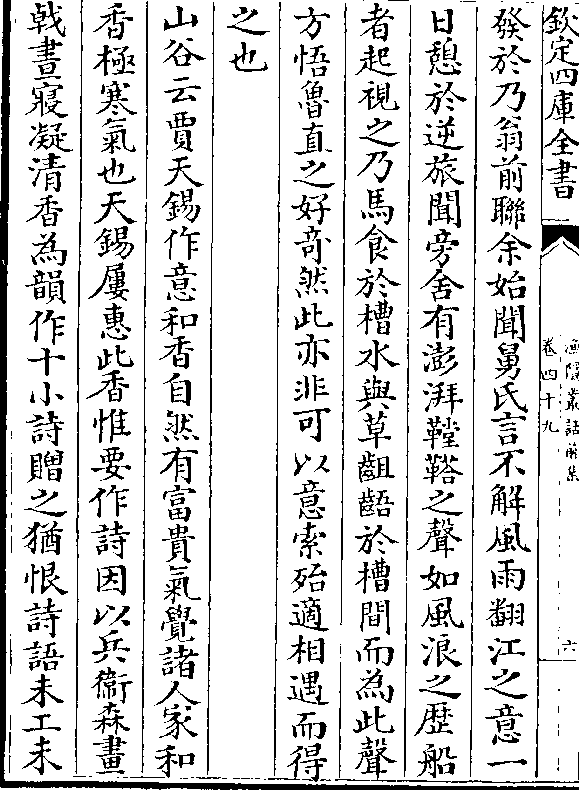 欽定四庫全書
漁隠叢話前集
卷四十九
六
發於乃翁前聯余始聞舅氏言不解風雨翻江之意一
日憩於逆旅聞旁舍有澎湃鞺鞳之聲如風浪之歴船
者起視之乃馬食於槽水與草齟齬於槽間而為此聲
方悟魯直之好竒然此亦非可以意索殆適相遇而得
之也
山谷云賈天錫作意和香自然有富貴氣覺諸人家和
香極寒氣也天錫屢惠此香惟要作詩因以兵衞森畫
㦸晝寢凝清香為韻作十小詩贈之猶恨詩語未工未